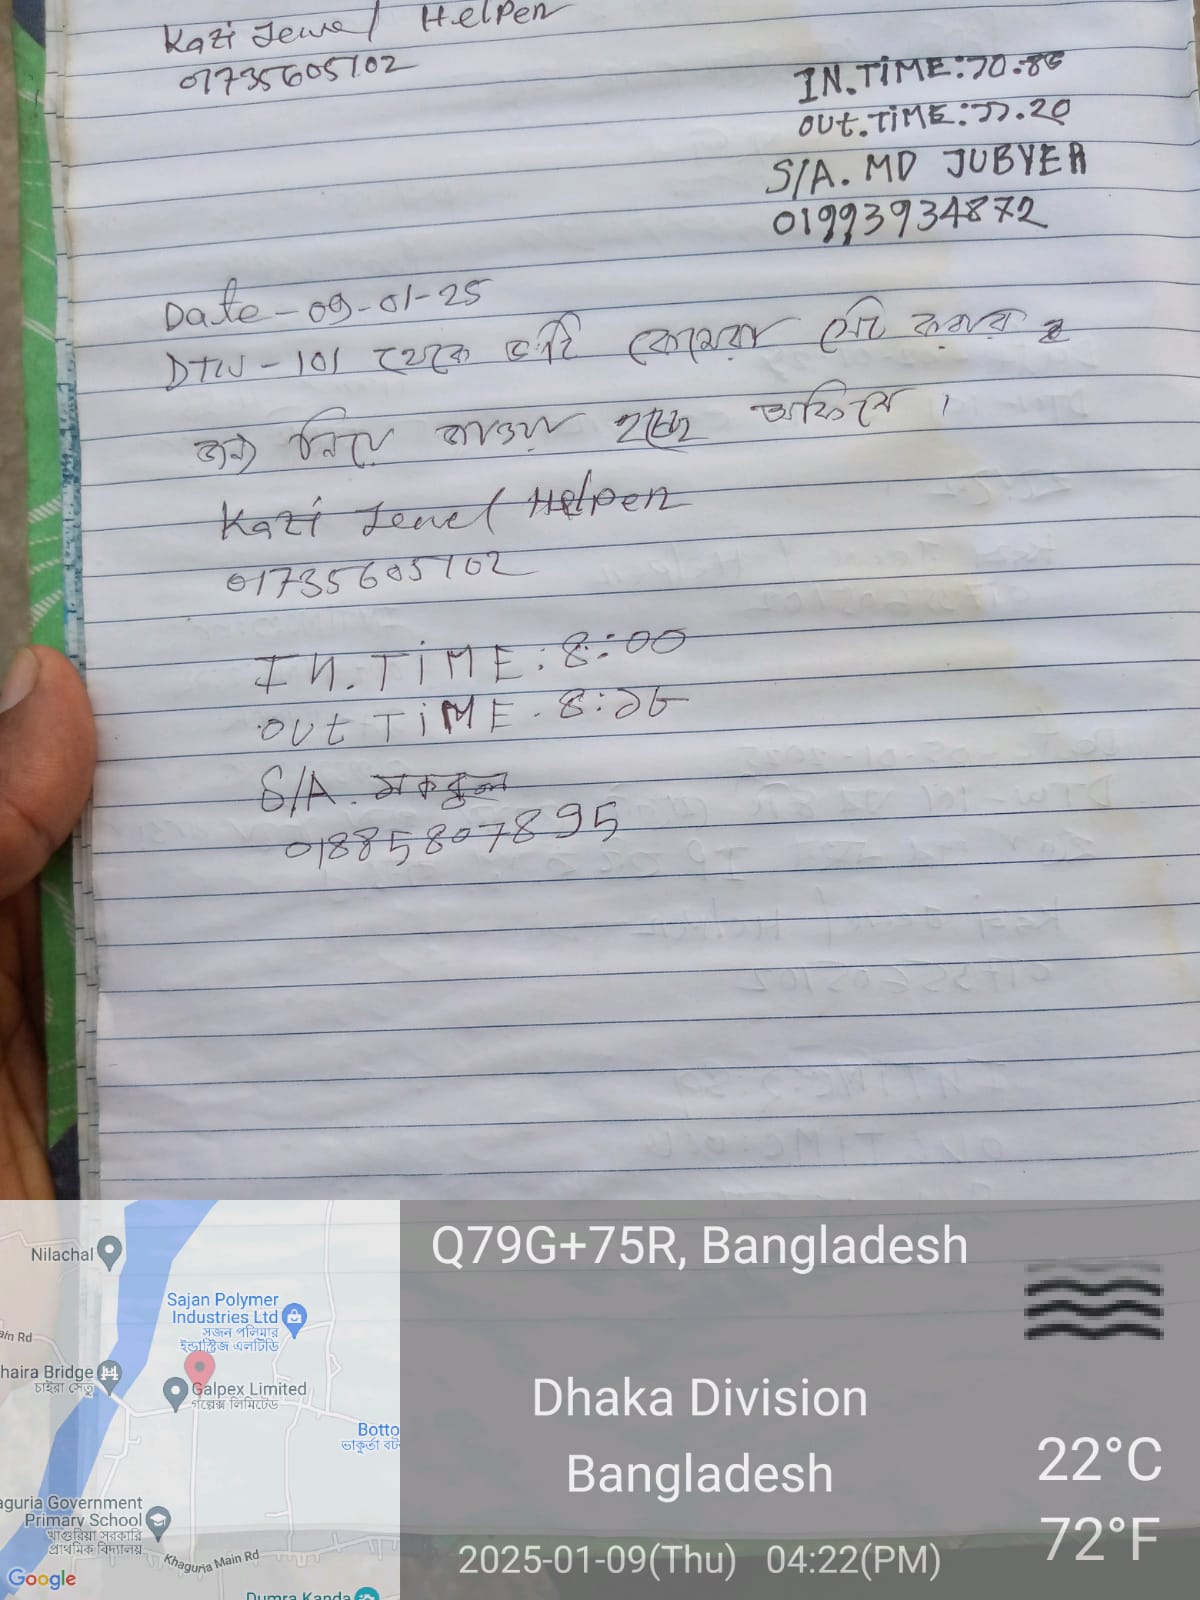 Kazi Jewel Helpen
01735605702
IN.TIME:১০.৪৫
OUt.TIME:১১.২০
S/A. MD JUBYER
01993934872
Date-09-01-25
DTW-101 থেকে ৬টি কেমেরা সেট করার
জন্য নিয়ে যাওয়া হচ্ছে অফিসে।
Kazi Jewel Helpen
01735605702
IN.TIME:8:00
OUt TIME.8:১৫
S/A. মকবুল
01885807895
Nilachal
Sajan Polymer
Industries Ltd
সজন পলিমার
ইন্ডাস্ট্রিজ এলটিডি
ain Rd
haira Bridge
চাইরা সেতু
Galpex Limited
গল্পেক্স লিমিটেড
Botto
ভাকুর্তা বট
aguria Government
Primary School
খাগুরিয়া সরকারি
প্রাথমিক বিদ্যালয়
Khaguria Main Rd
Google
Dumra Kanda
Q79G+75R, Bangladesh
Dhaka Division
Bangladesh
22°C
72°F
2025-01-09(Thu) 04:22(PM)